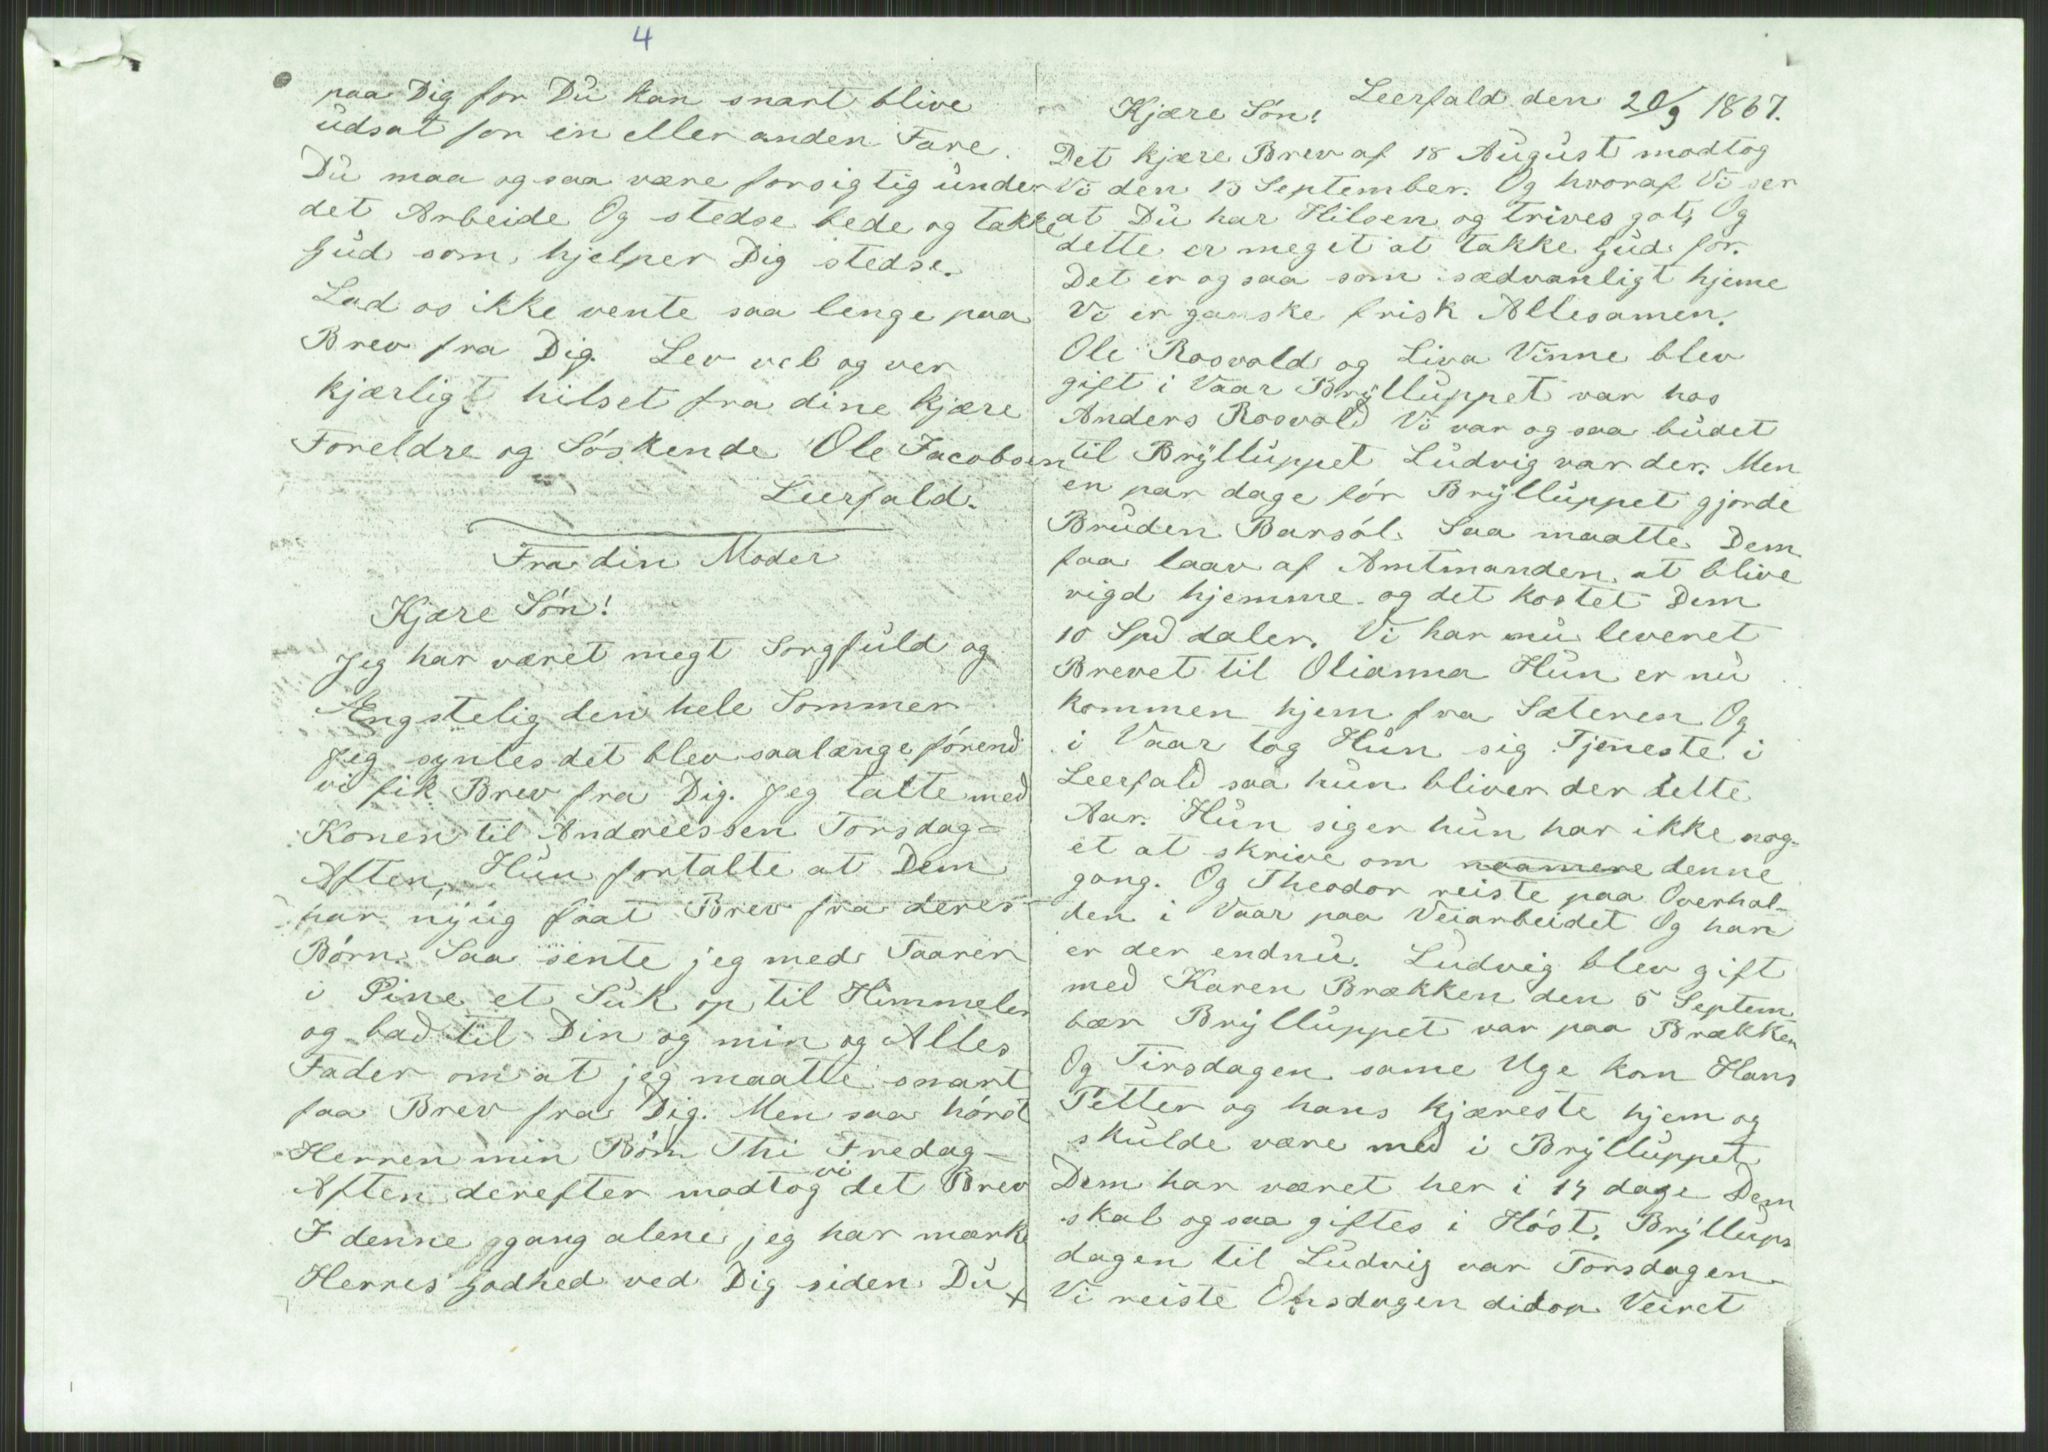 4
paa Dig for Du kan snart blive
udsat for en eller anden Fare.
Du maa ogsaa være forsigtig under
det Arbeide Og stedse bede og takke
Gud som hjelper Dig stedse.
Lad os ikke vente saa lenge paa
Brev fra Dig. Lev vel og ver
kjærligt hilset fra dine kjære
Foreldre og Söskende Ole Jacobsen
Leerfald.
Fra din Moder
Kjære Sön!
Jeg har været megt Sorgfuld og
Ængstelig den hele Sommer
Jeg syntes det blev saalænge förend
vi fik Brev fra Dig. Jeg talte med
Konen til Andreessen Torsdag-
Aften, Hun fortalte at Dem
har nyug faat Brev fra deres
Börn. Saa sente jeg med Taarer
i Pine et Suk op til Himmelen
og bad til Din og min og Alles
Fader om at jeg maatte snart
faa Brev fra Dig. Men saa hördt
Herren min Bön Thi Fredag-
Aften derefter modtog vi det Brev
I denne ggang alene jeg har mærke
Herres Godhed ved Dig siden Du x
Leerfald den 20/9 1867.
Kjære Sön!
Det kjære Brev af 18 August modtog
Vi den 13 September. Og hvoraf Vi ser
at Du har Hilsen og trives got, Og
dette er meget at takke Gud for.
Det er ogsaa som sædvanligt hjeme
Vi er ganske frisk Allesamen.
Ole Rosvold og Liva Vinne blev
gift i Vaar Brÿlluppet var hos
Anders Rosvold Vi var ogsaa budet
til Brÿlluppet Ludvig var der. Men
en par dage för Brÿlluppet gjorde
Bruden Barsöl. Saa maatte Dem
faa laav af Amtmanden at blive
vigd hjemme og det kostet Dem
10 Spd daler. Vi har nu leveret
Brevet til Olianna Hun er nu
kommen hjem fra Sæteren Og
i Vaar tog Hun sig Tjeneste i
Leerfald saa hun bliver der dette
Aar. Hun siger hun har ikke nog-
et at skrive om naamere denne
gang. Og Theodor reiste paa Overhal-
den i Vaar paa Veiarbeidet Og han
er der endnu. Ludvig blev gift
med Karen Brækken den 5 Septem
bær Brÿlluppet var paa Brækken
Og Tirsdagen same Uge kom Hans
Petter og hans kjæreste hjem og
skulde være med i Brÿlluppet
Dem har været her i 14 dage Dem
skal ogsaa giftes i Höst. Brÿllups
dagen til Ludvig var Torsdagen
Vi reiste Onsdagen didop Veiret